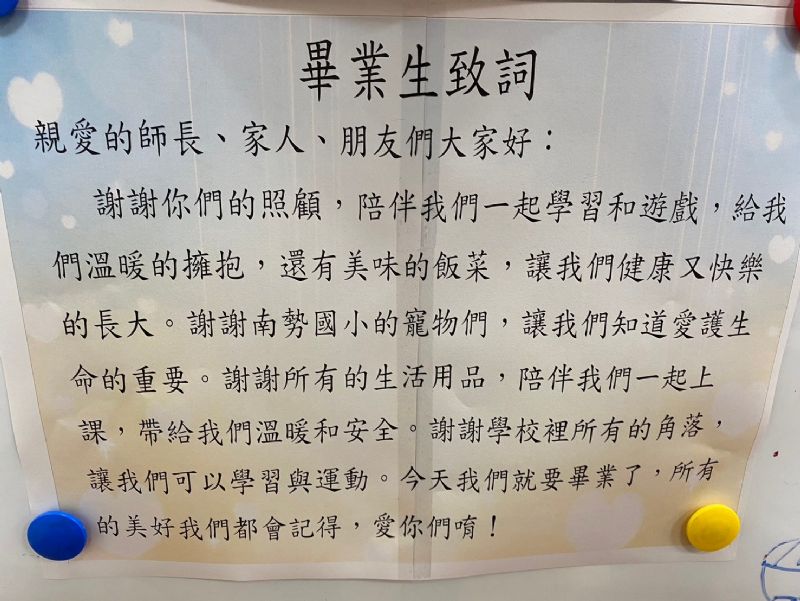 畢業生致詞
親愛的師長、家人、朋友們大家好：
謝謝你們的照顧，陪伴我們一起學習和遊戲，給我
們溫暖的擁抱，還有美味的飯菜，讓我們健康又快樂
的長大。謝謝南勢國小的寵物們，讓我們知道愛護生
命的重要。謝謝所有的生活用品，陪伴我們一起上
課，帶給我們溫暖和安全。謝謝學校裡所有的角落，
讓我們可以學習與運動。今天我們就要畢業了，所有
的美好我們都會記得，愛你們唷！